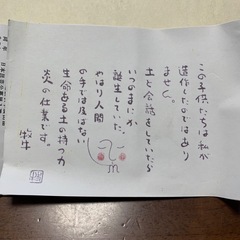 この子供たちは私が
造作したのではあり
ません。
土と会話をしていたら
いつのまにか
誕生していた。
やはり人間
の手では及ばない
生命ある土の持つ力
炎の仕業です。
牧牛